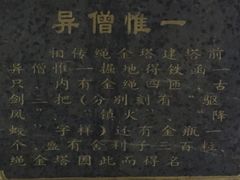 异僧惟一
相传绳金塔建塔前
异僧惟一掘地得铁函一
只，内有金绳四匝，古
剑三把（分别刻有“驱
风”、“镇火”、“降
蛟”字样）还有金瓶一
个，盛有舍利子三百粒，
绳金塔因此而得名